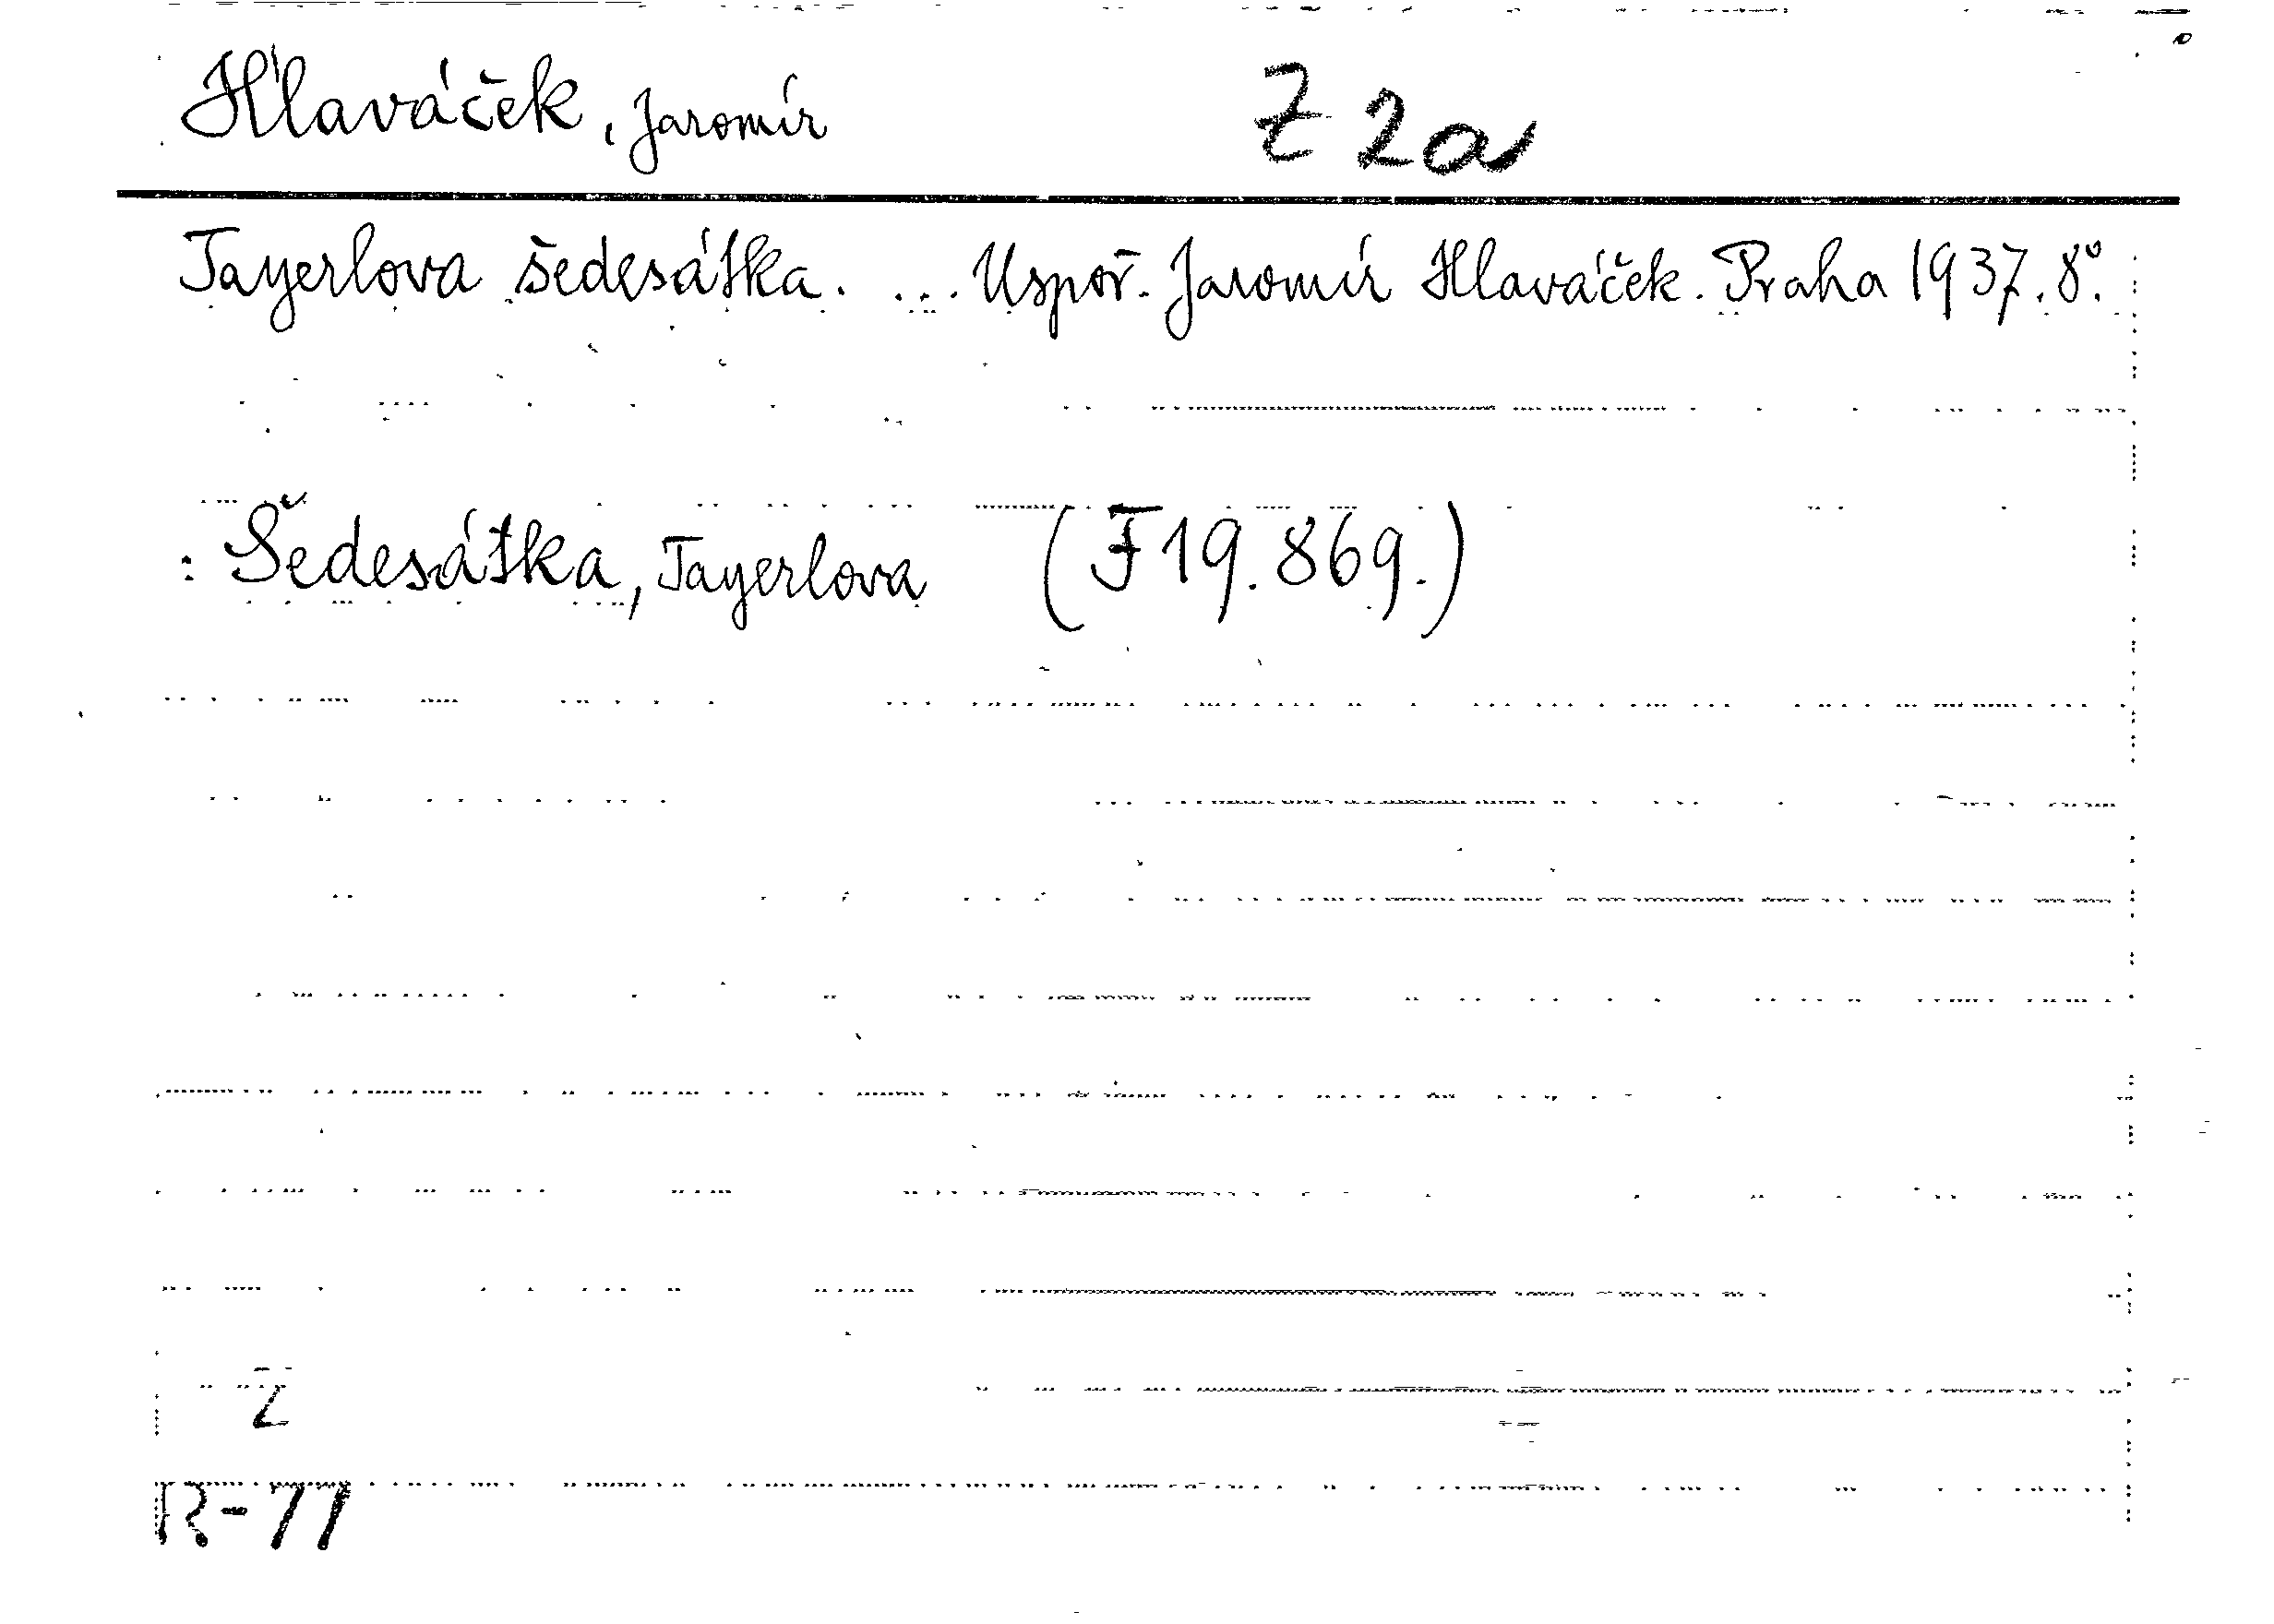 Hlaváček, Jaromír Z 2a
Tayerlova šedesátka. ... Uspoř. Jaromír Hlaváček. Praha 1937. 8°.
: Šedesátka, Tayerlova (F 19.869.)
Z
R-77